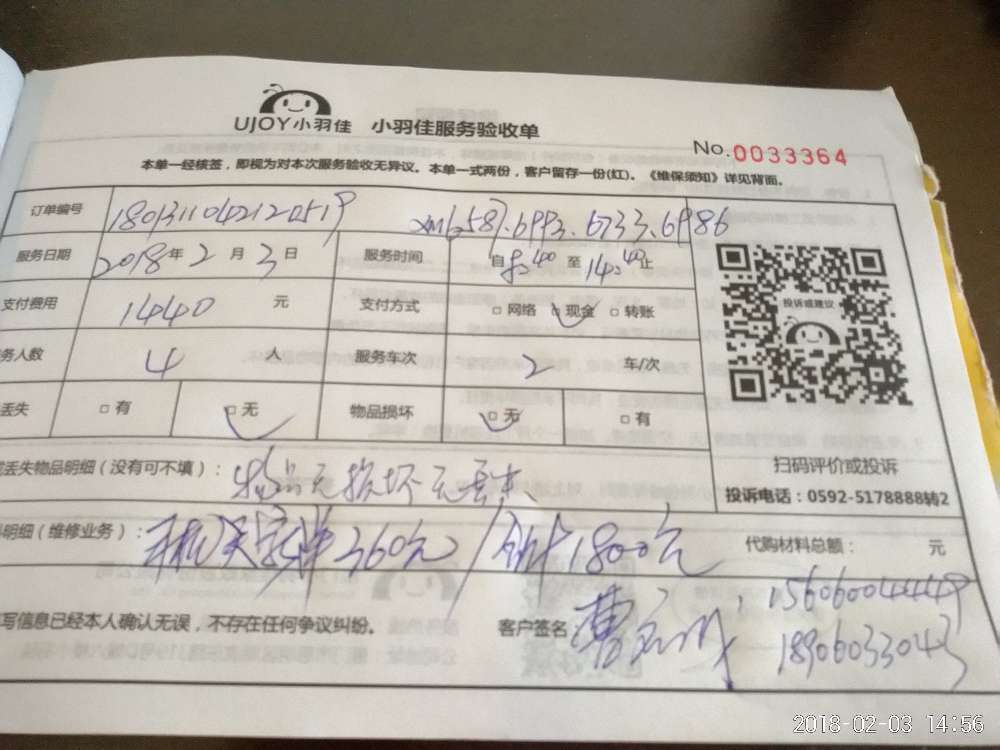 UJOY小羽佳 小羽佳服务验收单
No.0033364
本单一经核签，即视为对本次服务验收无异议。本单一式两份，客户留存一份(红)。《维保须知》详见背面。
订单编号 xm6587.6993.6733.6986
服务日期 2018年2月3日 服务时间 自8:00至14:00止
支付费用 1440元 支付方式 □网络 □现金 □转账
务人数 4人 服务车次 2车/次
丢失 □有 □无 物品损坏 □无 □有
投诉或建议
扫码评价或投诉
投诉电话：0592-5178888转2
丢失物品明细（没有可不填）： 物品无损坏无丢失
明细（维修业务）： 360元/合计1800元 代购材料总额： 元
写信息已经本人确认无误，不存在任何争议纠纷。 客户签名 曹
15606004449
18906033043
2018-02-03 14:56